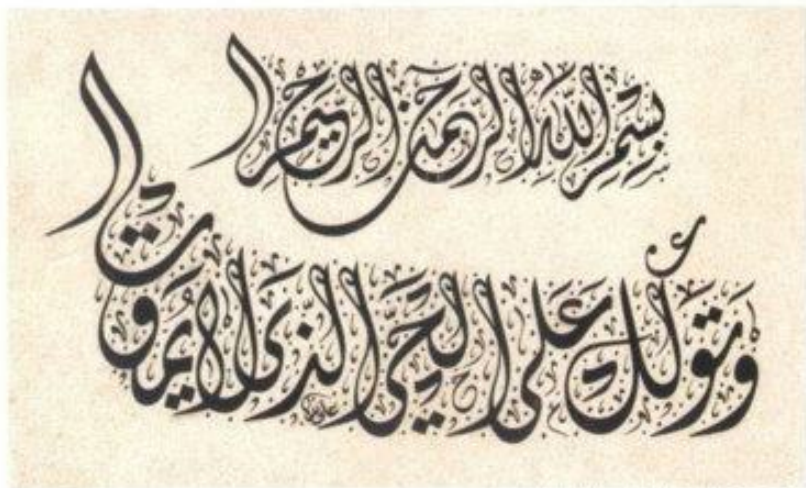 بِسْمِ اللهِ الرَّحْمٰنِ الرَّحِيمِ
وَتَوَكَّلْ عَلَى الْحَيِّ الَّذِي لَا يَمُوتُ